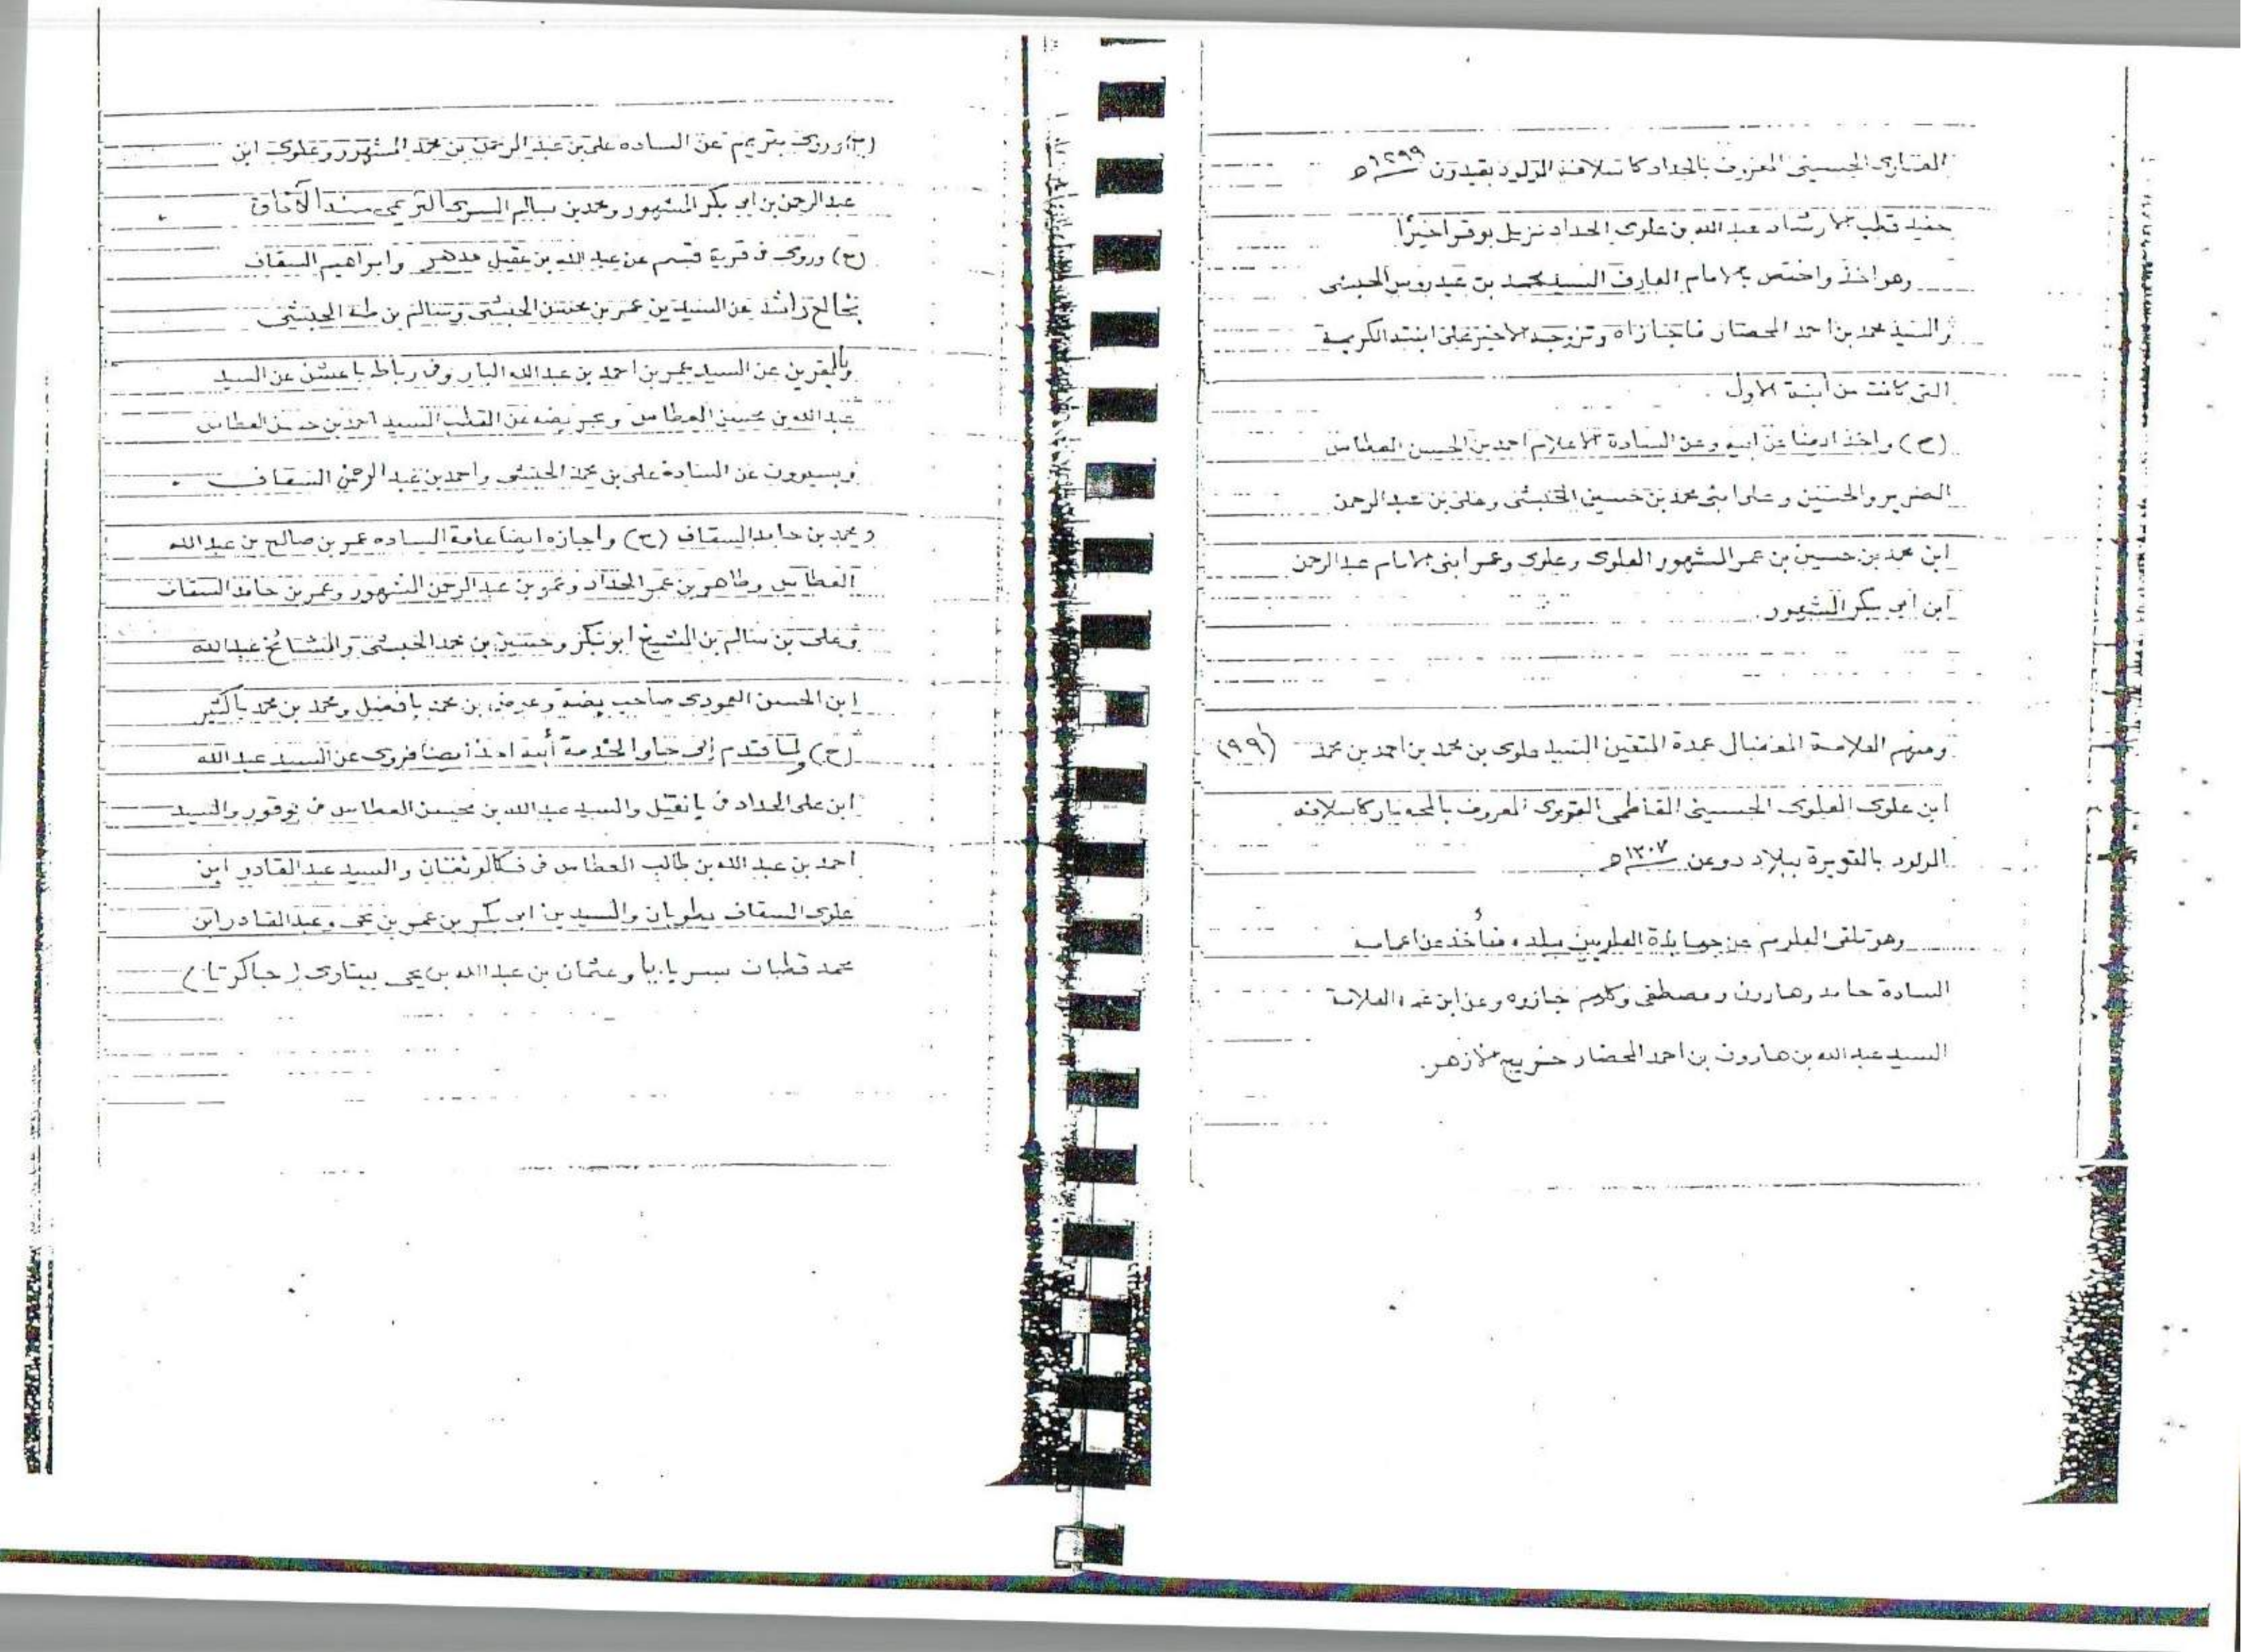 الحسيني المعروف بالحداد كأسلافه المولود بقيدون ١٢٩٩هـ
حفيد قطب الارشاد عبد الله بن علوي الحداد نزيل بوقر اخيرًا
وهو اخذ واختص بالامام العارف السيد محمد بن عيدروس الحبشي
والسيد محمد بن احمد المحضار فاجازاه وتزوجه الاخير على ابنته الكريمة
التي كانت من ابنة الاول .
(ح) واخذ ايضا عن ابيه وعن السادة الاعلام احمد بن الحسن العطاس
الضرير والحسين وعلى ابني محمد بن حسين الحبشي وعلى بن عبد الرحمن
ابن محمد بن حسين بن عمر المشهور العلوي وعلوي وعمر ابنى الامام عبد الرحمن
ابن ابي بكر المشهور.
ومنهم العلامة المفضال عمدة المتقين السيد علوى بن محمد بن احمد بن محمد (٩٩)
ابن علوى العلوى الحسينى الفاطمى القويرى المعروف بالمحضار كأسلافه
المولود بالقويرة ببلاد دوعن ١٣٠٧هـ
وهو تلقى العلوم عن جهابذة العلويين ببلده فأخذ عن اعمامه
السادة حامد وهارون ومصطفى وكلهم جازوه وعن ابن عمه العلامة
السيد عبد الله بن هارون بن احمد المحضار خريج الازهر.
(ح) وروى بتريم عن الساده على بن عبد الرحمن بن محمد المشهور وعلوى ابن
عبد الرحمن بن ابى بكر المشهور ومحمد بن سالم السرى التريمى مسند الآفاق
(ح) وروى فى قرية قسم عن عبد الله بن عقيل مدهر وابراهيم السقاف
راشد عن السيدين عمر بن محسن الحبشى وسالم بن طه الحبشى
وبالقرين عن السيد عمر بن احمد بن عبد الله البار وفى رباط باعشن عن السيد
عبد الله بن محسن العطاس وبحريضه عن القطب السيد احمد بن حسن العطاس
وبسيوون عن السادة على بن محمد الحبشى واحمد بن عبد الرحمن السقاف .
ومحمد بن حامد السقاف (ح) واجازه ايضا عامة الساده عمر بن صالح بن عبد الله
العطاس وطاهر بن عمر الحداد وعمر بن عبد الرحمن المشهور وعمر بن حامد السقاف
وعلى بن سالم بن الشيخ ابو بكر وحسين بن محمد الحبشى والمشائخ عبد الله
ابن الحسن العمودى صاحب بضه وعوض بن محمد بافضل ومحمد بن محمد باكثير
(ح) ولما قدم إلى جاوا لخدمة أبيه اخذ ايضا فروى عن السيد عبد الله
ابن على الحداد فى بانقيل والسيد عبد الله بن محسن العطاس فى بوقور والسيد
احمد بن عبد الله بن طالب العطاس فى فكالونغان والسيد عبد القادر ابن
علوى السقاف بطوبان والسيدين ابى بكر بن عمر بن يحى وعبد القادر ابن
محمد قطبان بسربايا وعثمان بن عبد الله بن يحى ببتاوى (جاكرتا)